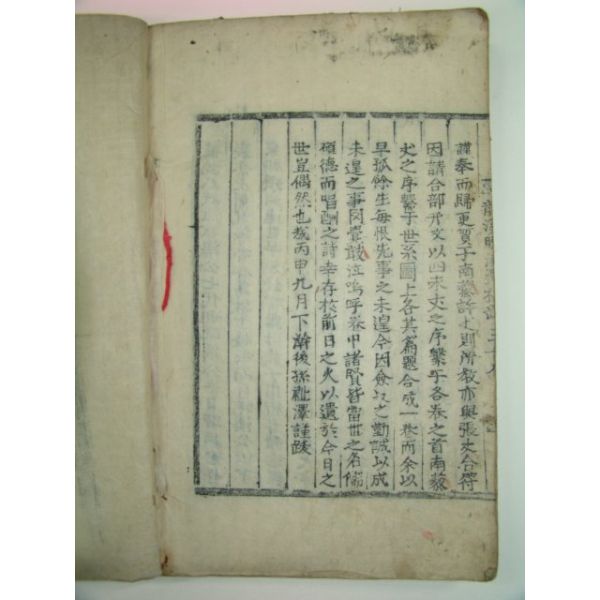 謹奉而歸更質于南藜許丈則所敎亦與張丈合符
因請合部幷文以四未丈之序繫乎各卷之首南藜
丈之序繫于世系圖上各其篇題合成一卷而余以
早孤餘生每恨先事之未遑今因僉 之勤誠以成
未遑之事罔 鼓泣嗚呼卷甲諸賢皆當世之名儒
碩德而唱酬之詩幸存於前日之火以遺於今日之
世豈偶然也哉丙申九月下澣後孫祉澤謹跋